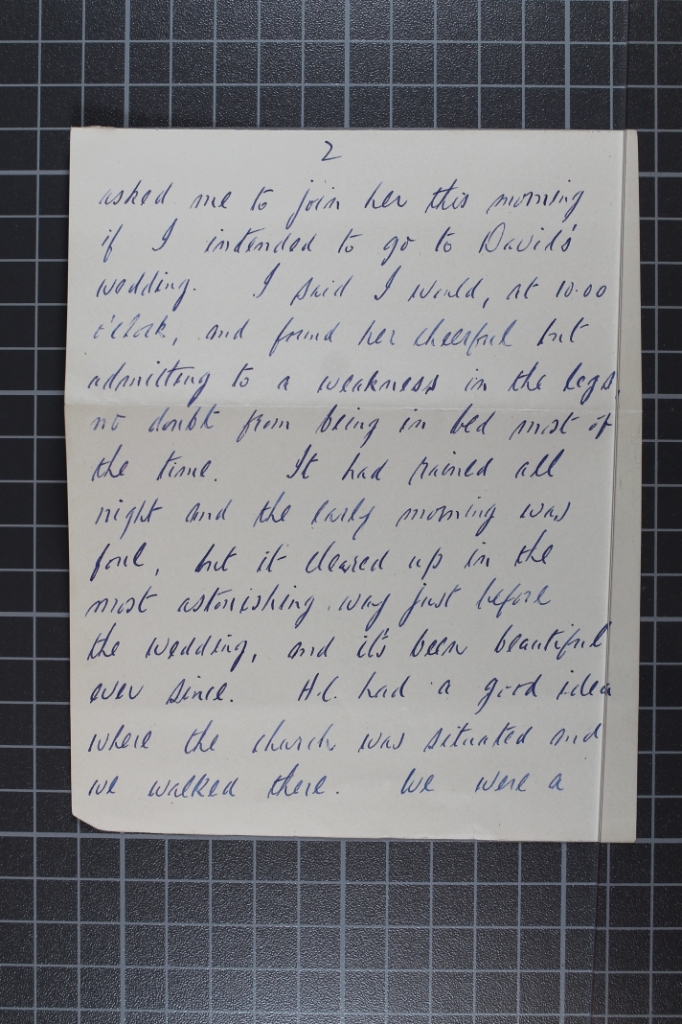 2
asked me to join her this morning
if I intended to go to David's
wedding. I said I would, at 10.00
o'clock, and found her cheerful but
admitting to a weakness in the legs,
no doubt from being in bed most of
the time. It had rained all
night and the early morning was
foul, but it cleared up in the
most astonishing way just before
the wedding, and it's been beautiful
ever since. H.C. had a good idea
where the church was situated and
we walked there. We were a